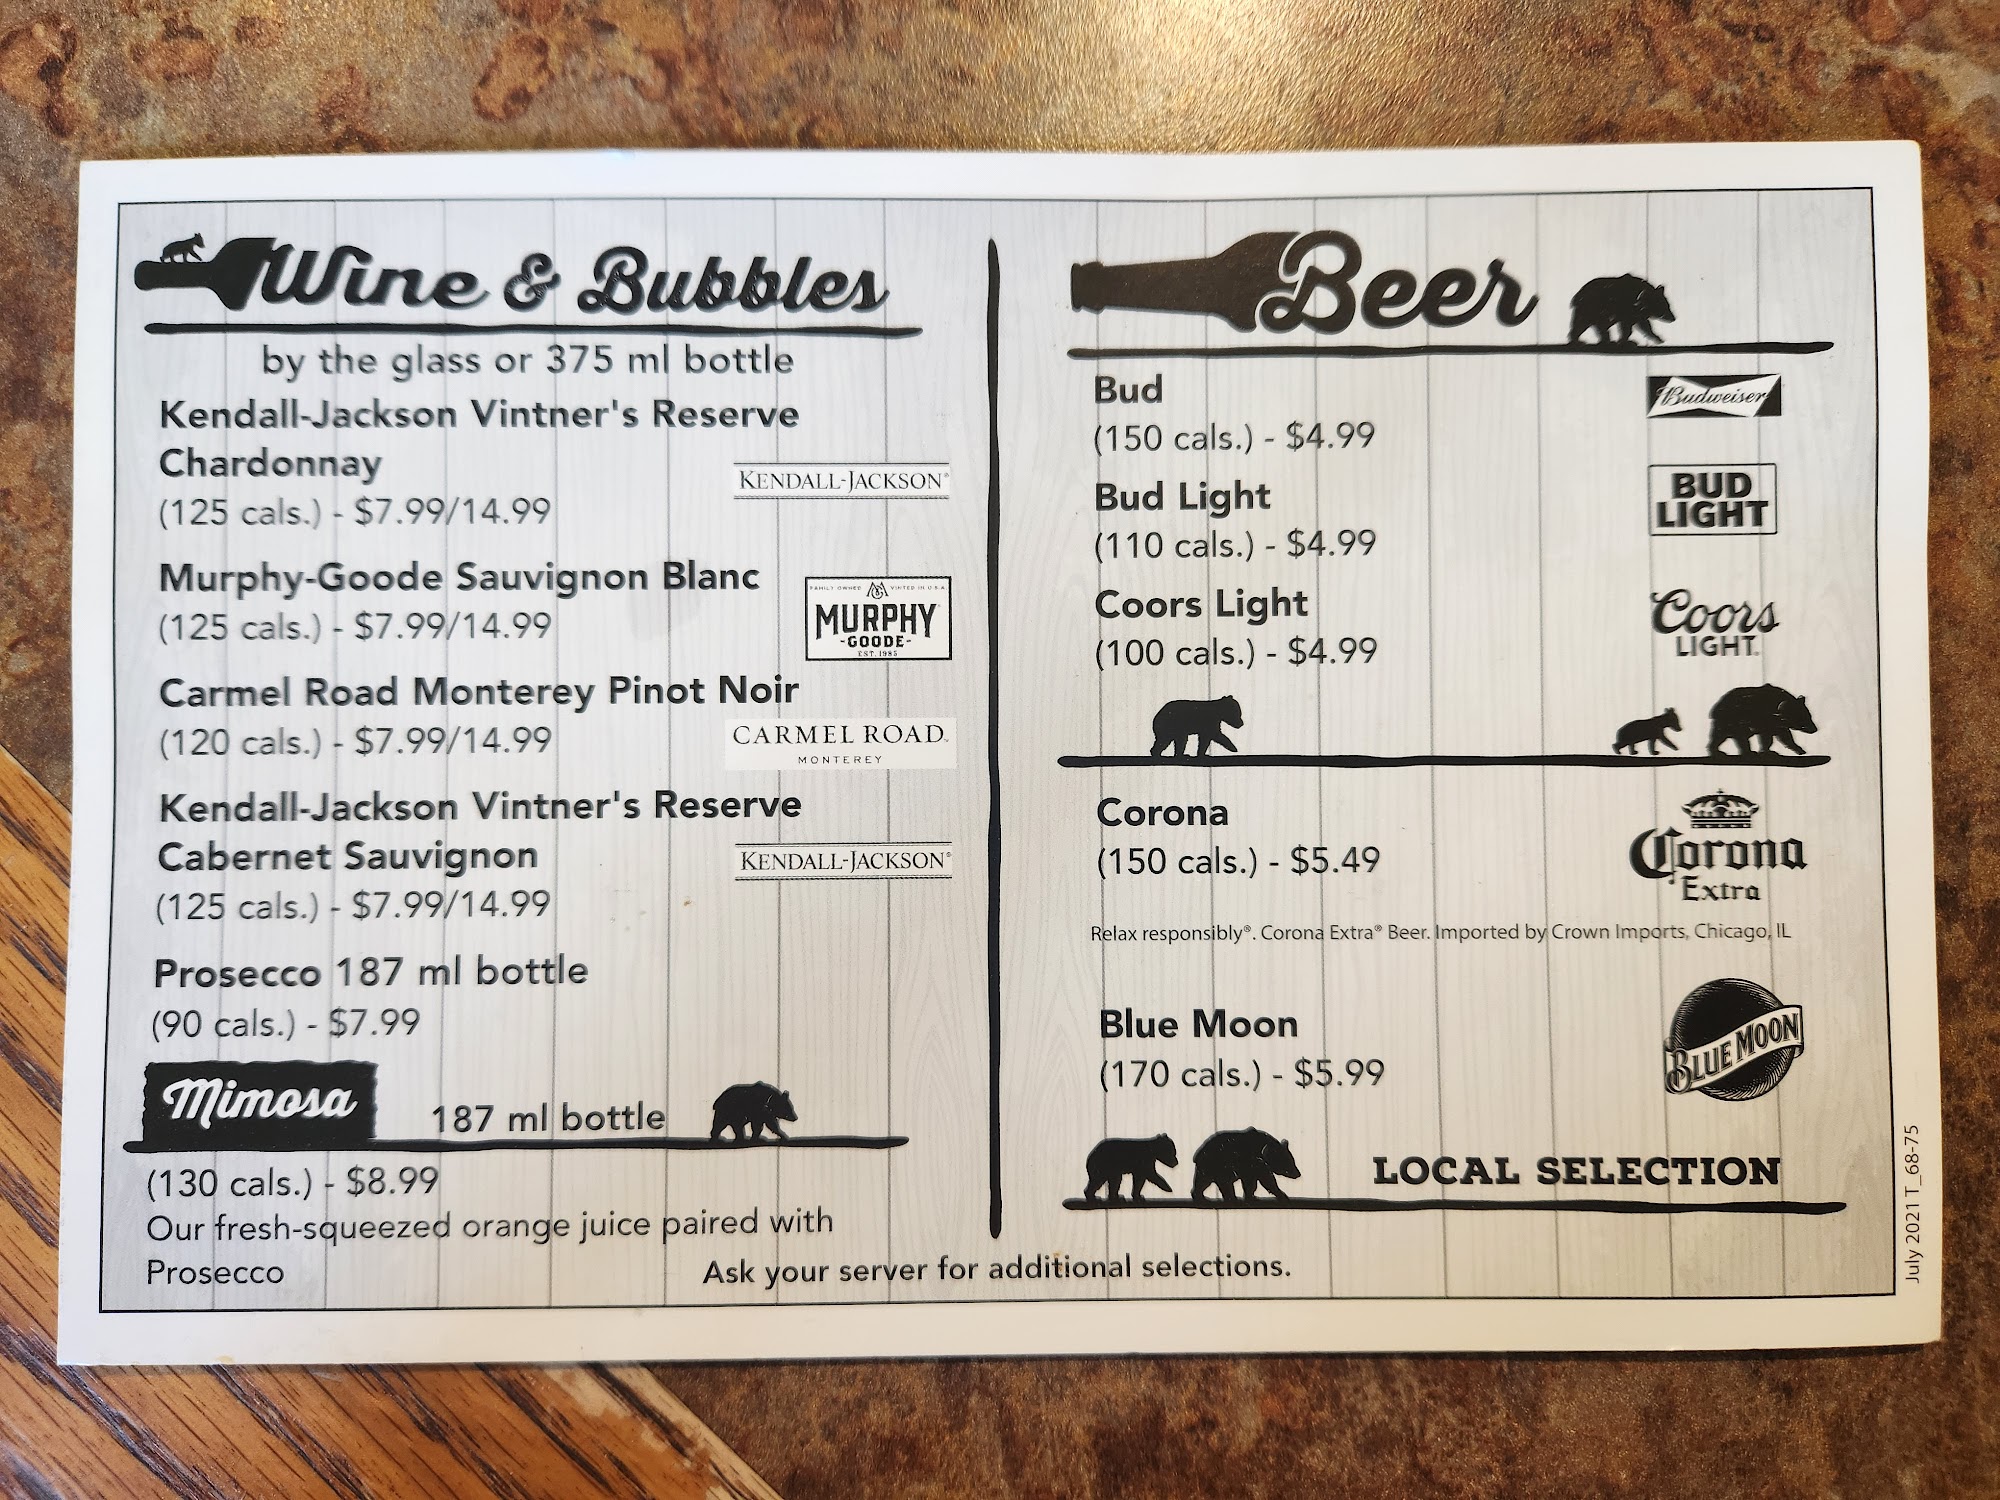 Wine & Bubbles
by the glass or 375 ml bottle
Kendall-Jackson Vintner's Reserve
Chardonnay
KENDALL-JACKSON®
(125 cals.) - $7.99/14.99
Murphy-Goode Sauvignon Blanc
(125 cals.) - $7.99/14.99
FAMILY OWNED VINTED IN U.S.A.
MURPHY
-GOODE-
EST. 1985
Carmel Road Monterey Pinot Noir
(120 cals.) - $7.99/14.99
CARMEL ROAD
MONTEREY
Kendall-Jackson Vintner's Reserve
Cabernet Sauvignon
KENDALL-JACKSON®
(125 cals.) - $7.99/14.99
Prosecco 187 ml bottle
(90 cals.) - $7.99
Mimosa 187 ml bottle
(130 cals.) - $8.99
Our fresh-squeezed orange juice paired with
Prosecco
Beer
Bud
Budweiser
(150 cals.) - $4.99
Bud Light
(110 cals.) - $4.99
BUD
LIGHT
Coors Light
(100 cals.) - $4.99
Coors
LIGHT
Corona
(150 cals.) - $5.49
Corona
Extra
Relax responsibly®. Corona Extra® Beer. Imported by Crown Imports, Chicago, IL
Blue Moon
(170 cals.) - $5.99
BLUE MOON
LOCAL SELECTION
Ask your server for additional selections.
July 2021 T_68-75